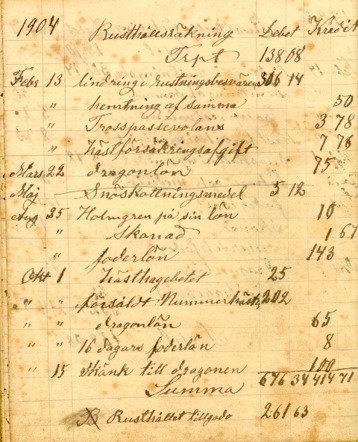 1904 Rusthållsräkning Debet Kredit
Trpt 138 08
Febr 13 lindring i rustningsbesvären 306 14
" hemtning af samma 50
" Trosspassevolans 3 78
" Hästförsäkringsafgift 7 76
Mars 22 dragonlön 75
Maj Snöskottningsmedel 5 12
Aug 25 Holmgren på sin lön 10
" Skanad 1 67
" foderlön 143
Okt 1 Hästhagebetet 25
" " försåldt Nummerhäst 202
" " dragonlön 65
" " 16 dagars foderlön 8
" 15 Skänk till dragonen 100
Summa 676 34 414 71
Rusthållet tillgodo 261 63